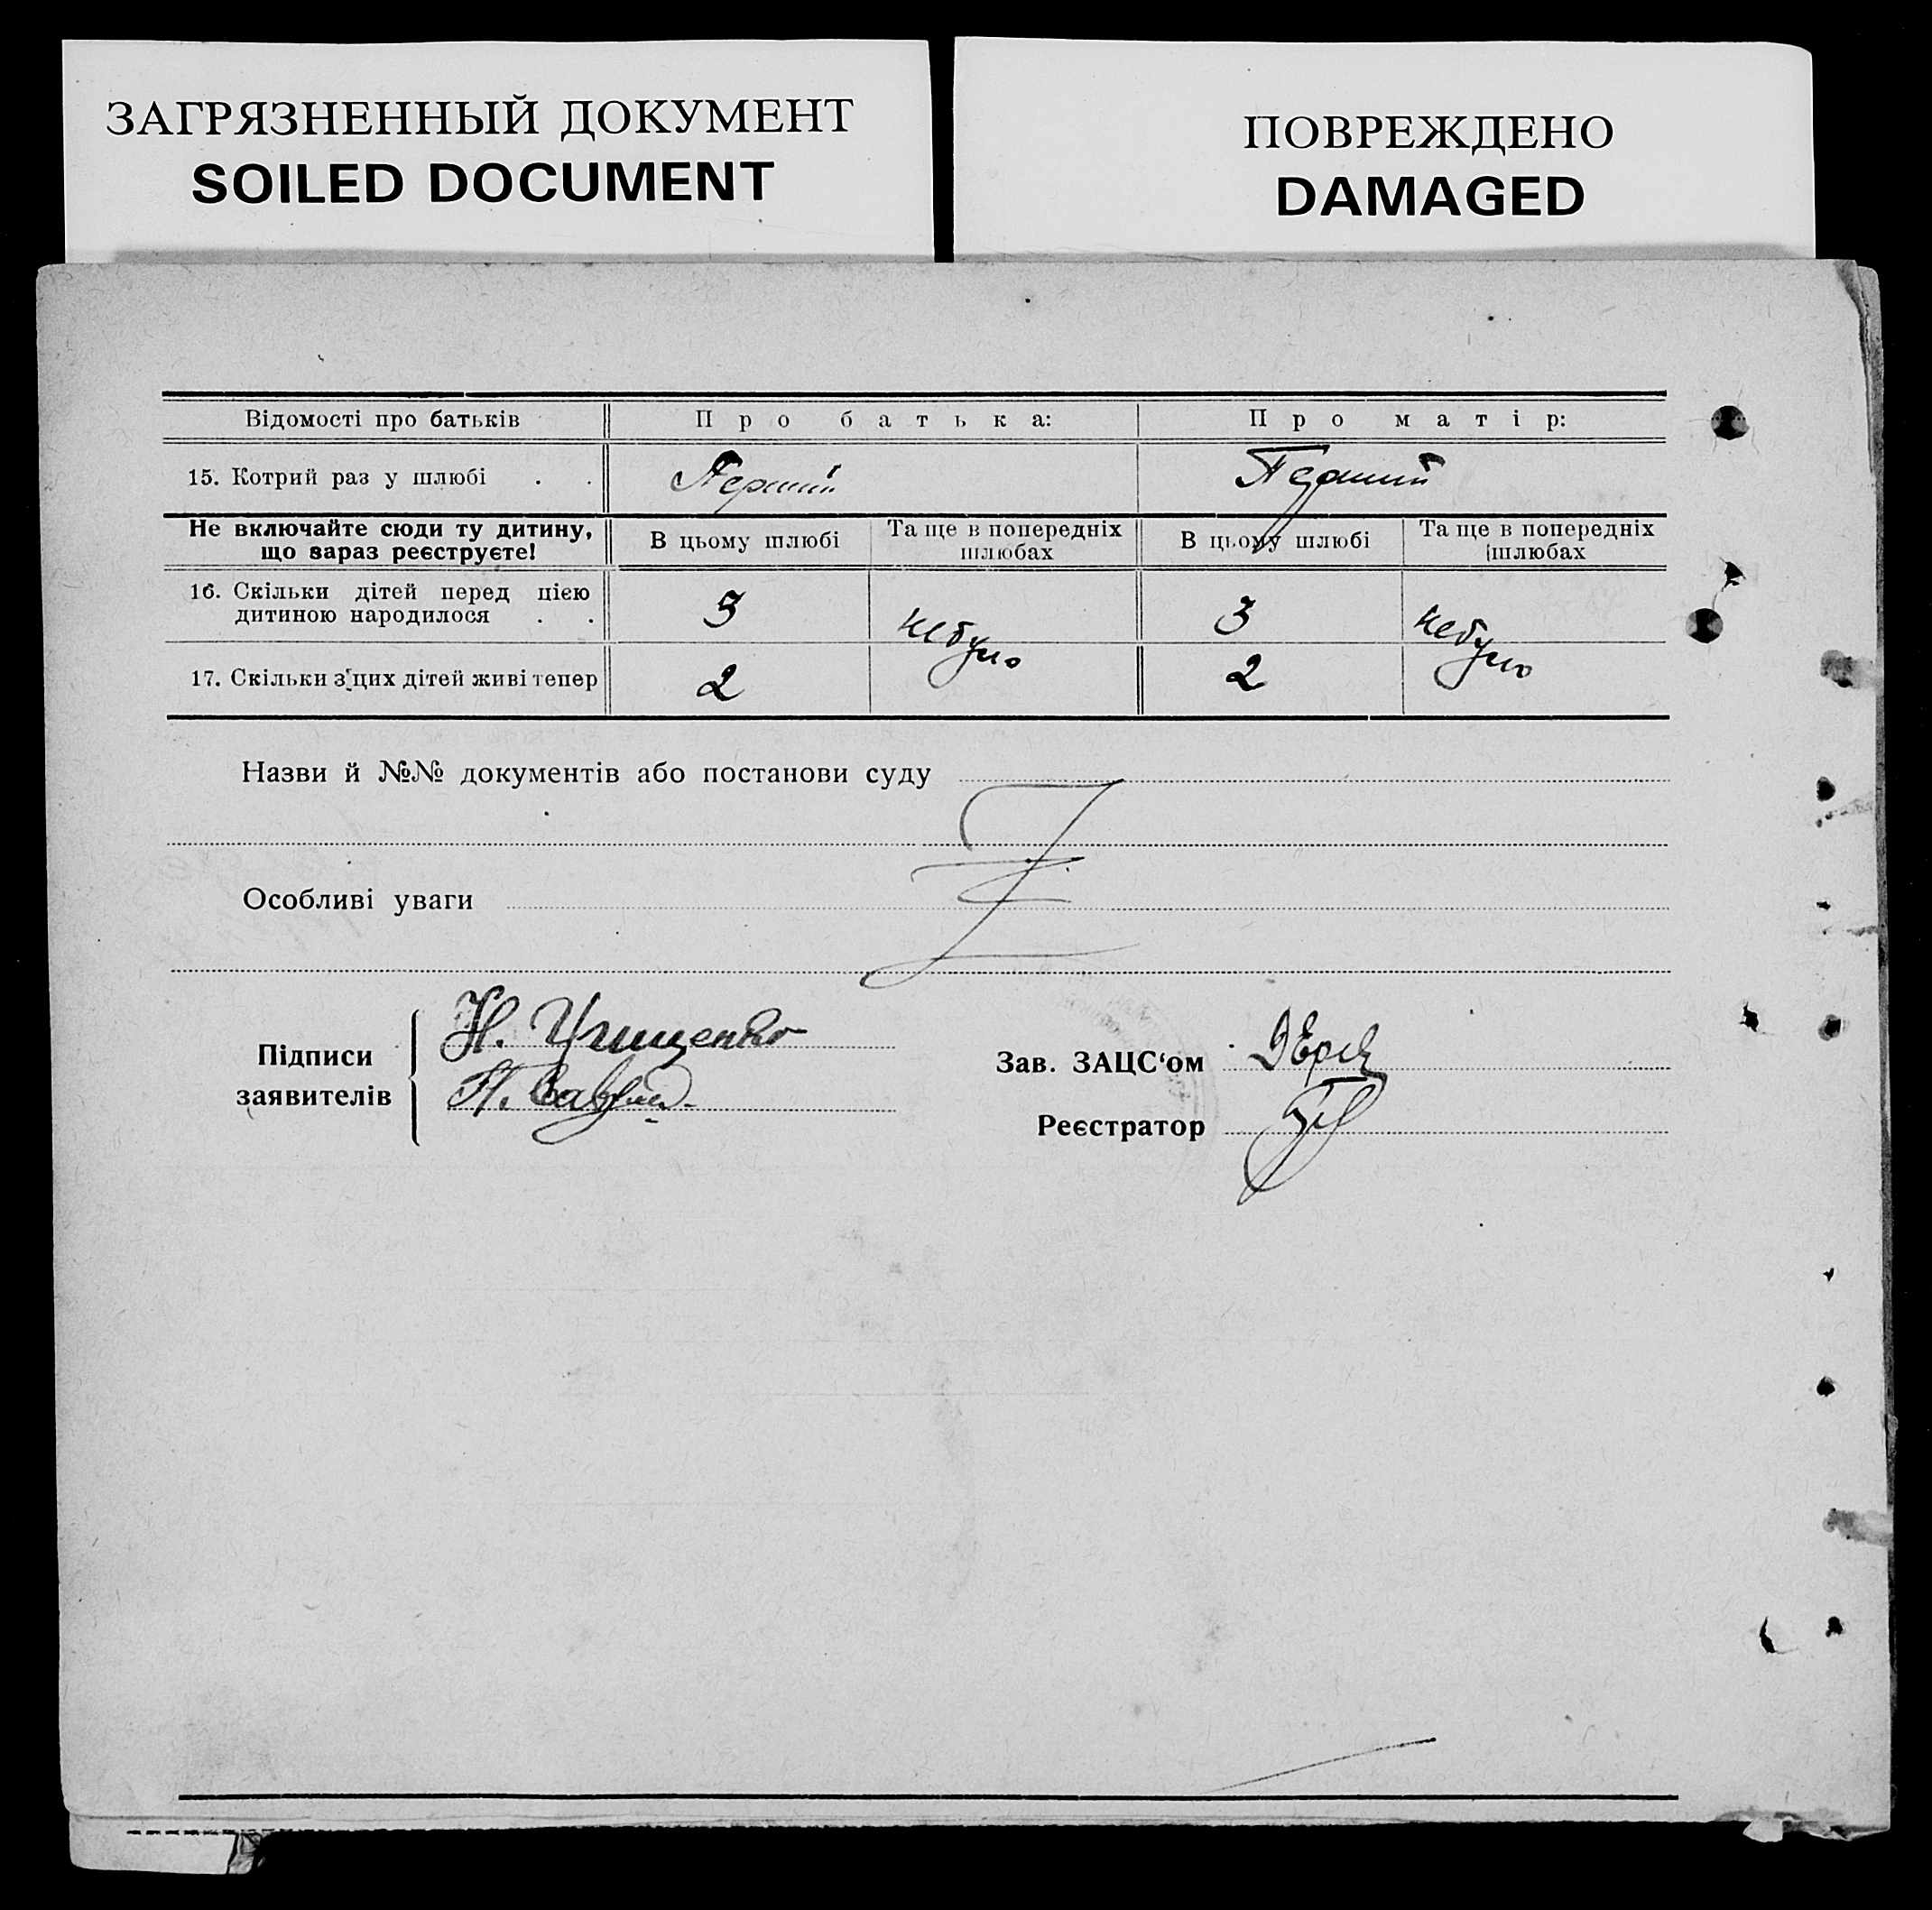 ЗАГРЯЗНЕННЫЙ ДОКУМЕНТ
SOILED DOCUMENT
ПОВРЕЖДЕНО
DAMAGED
Відомості про батьків Про батька: Про матір:
15. Котрий раз у шлюбі . . Перший Перший
Не включайте сюди ту дитину, що зараз реєструєте! В цьому шлюбі Та ще в попередніх шлюбах В цьому шлюбі Та ще в попередніх шлюбах
16. Скільки дітей перед цією
дитиною народилося . . 3 небуло 3 небуло
17. Скільки з цих дітей живі тепер 2 2
Назви й №№ документів або постанови суду
Особливі уваги
Підписи
заявителів
Н.
Зав. ЗАЦС‘ом
Реєстратор